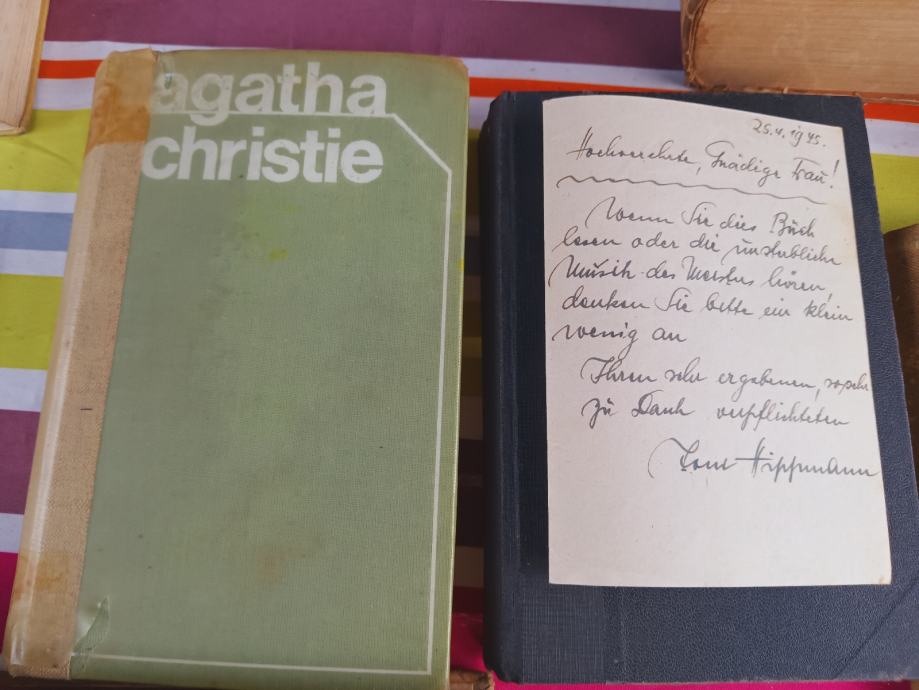 agatha
christie
25.4.1945.
Hochverehrte, Gnädige Frau!
Wenn Sie dies Buch
lesen oder die unsterbliche
Musik des Meisters hören,
denken Sie bitte ein klein
wenig an
Ihren sehr ergebenen, so sehr
zu Dank verpflichteten
Hippmann